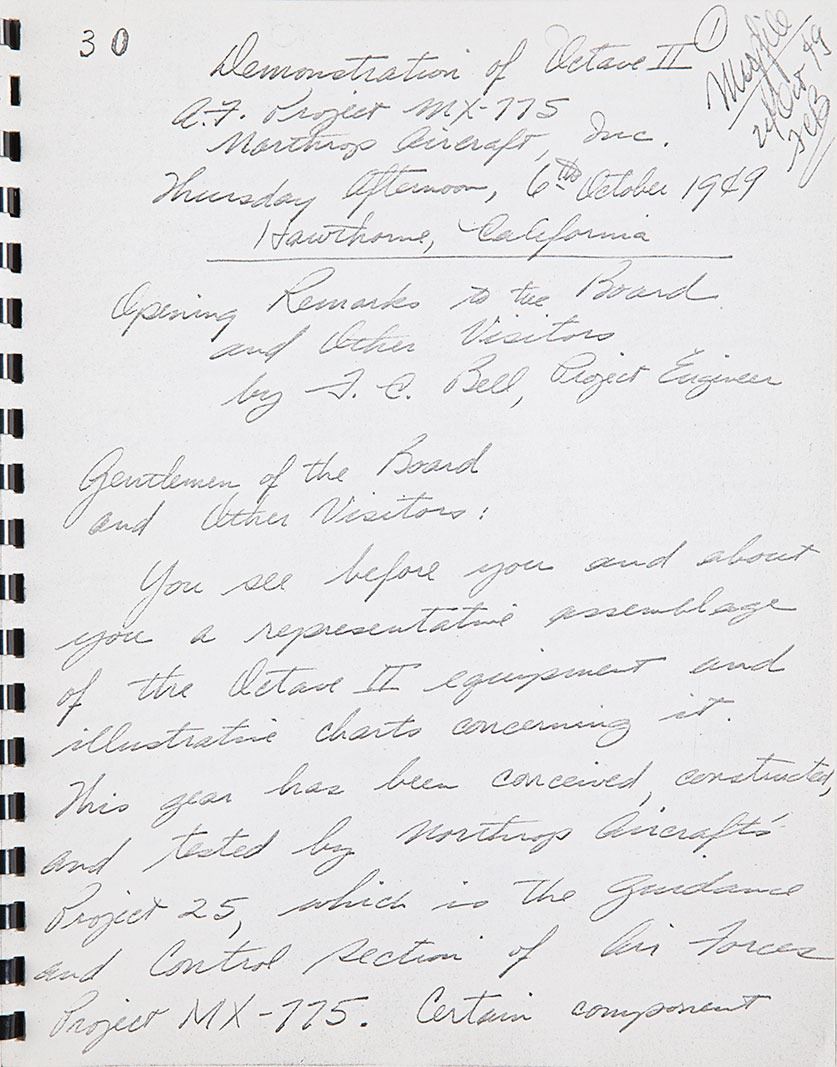 30
①
Msgfile
24 Oct 49
FCB
Demonstration of Octave II
A.F. Project MX-775
Northrop Aircraft, Inc.
Thursday Afternoon, 6th October 1949
Hawthorne, California
Opening Remarks to the Board
and Other Visitors
by F. C. Bell, Project Engineer
Gentlemen of the Board
and Other Visitors:
You see before you and about
you a representative assemblage
of the Octave II equipment and
illustrative charts concerning it.
This gear has been conceived, constructed,
and tested by Northrop Aircraft's
Project 25, which is the Guidance
and Control Section of Air Forces
Project MX-775. Certain component